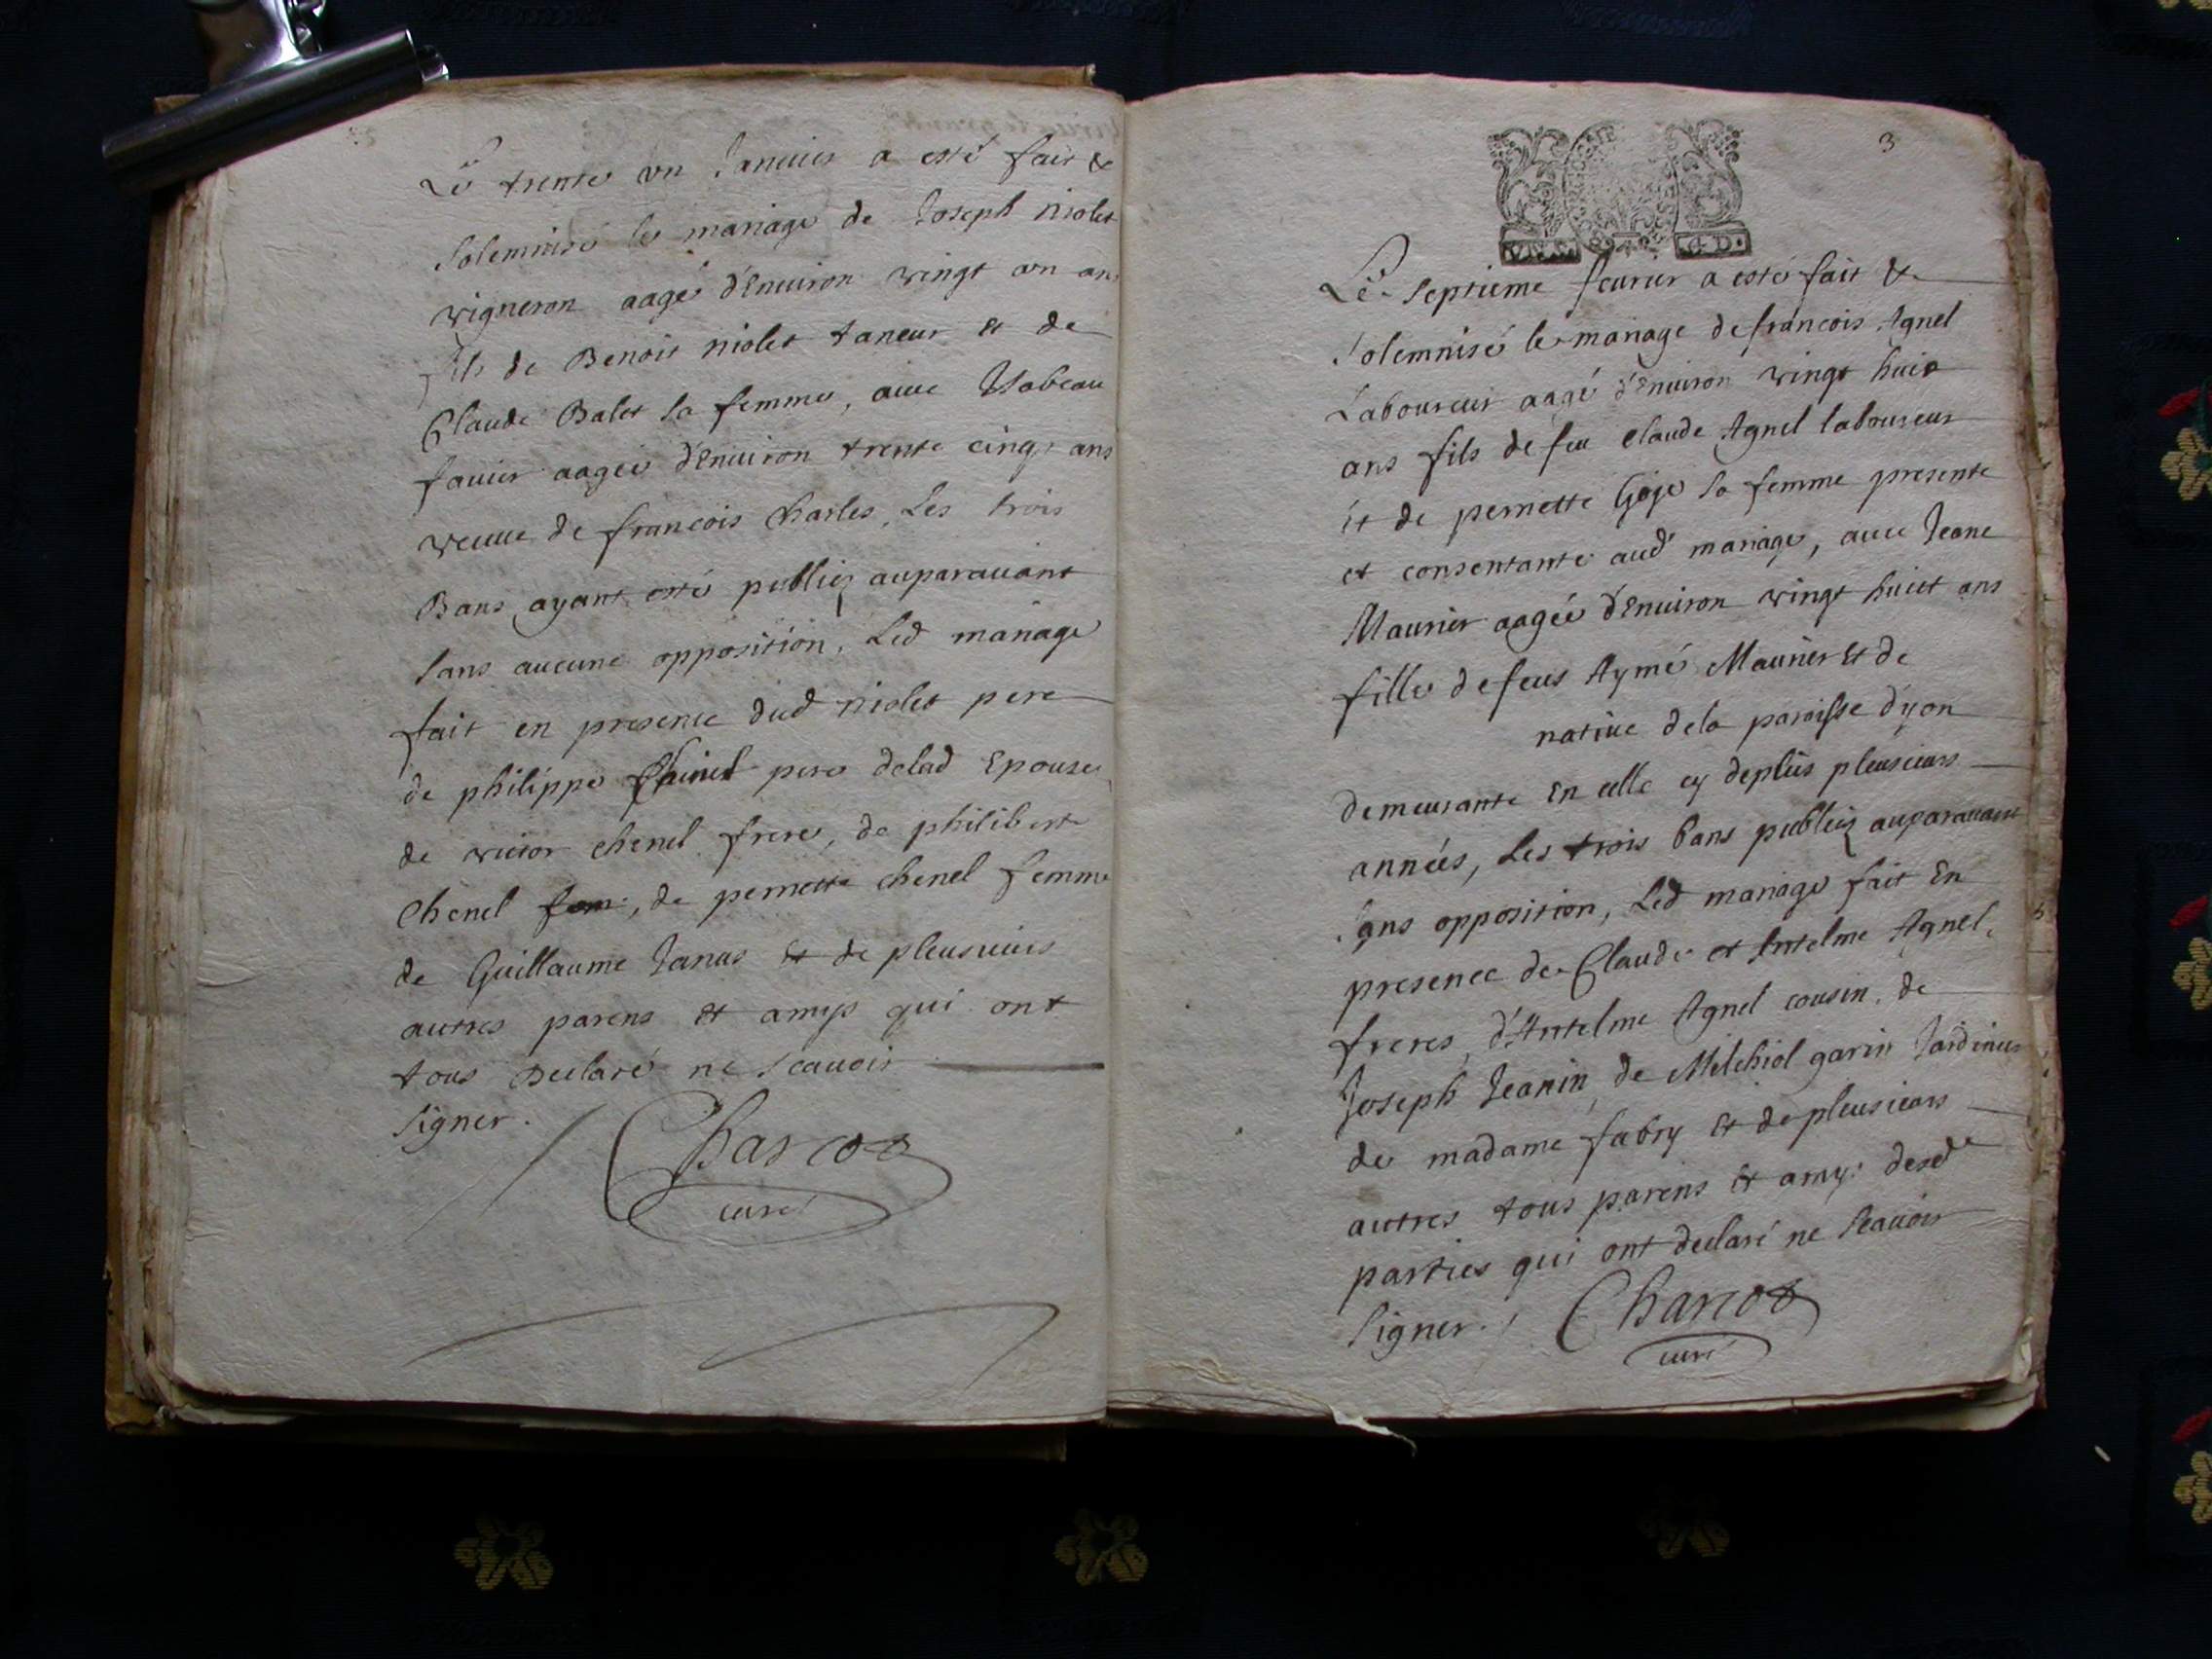 Le trente vn Januier a esté fait &
Solemnisé le mariage de Joseph niolet
vigneron aagé d'Enuiron vingt vn ans
fils de Benoit niolet taneur et de
Claude Balet sa femme, auec Isabeau
fauier aagée d'Enuiron trente cinq ans
veuue de francois Charles, Les trois
Bans ayant esté publiez auparauant
sans aucune opposition, Led mariage
fait en presence dud niolet pere
de philippe pere delad Epouse,
de victor chenel frere, de philibert
Chenel, de pernette chenel femme
de Guillaume Janus Et de pleusieurs
autres parens et amys qui ont
tous Declaré ne scauoir
signer. Charcot
curé
3
Le septieme feurier a esté fait &
solemnisé le mariage de francois Agnel
Laboureur aagé d'Enuiron vingt huit
ans fils de feu Claude Agnel laboureur
et de pernette Goje sa femme presente
et consentante aud mariage, auec Jeane
Maurier aagée d'Enuiron vingt huict ans
fille de feus Aymé Maurier Et de
natiue dela paroisse d'yon
demeurante En celle cy depuis pleusieurs
années, Les trois bans publiez auparauant
sans opposition, Led mariage fait En
presence de Claude et Antelme Agnel
freres, d'Antelme Agnel cousin, de
Joseph Jeanin, de Melchiol garin Jardinier
de madame fabry Et de pleusieurs
autres tous parens Et amys desd
parties qui ont declaré ne scauoir
signer. Charcot
curé